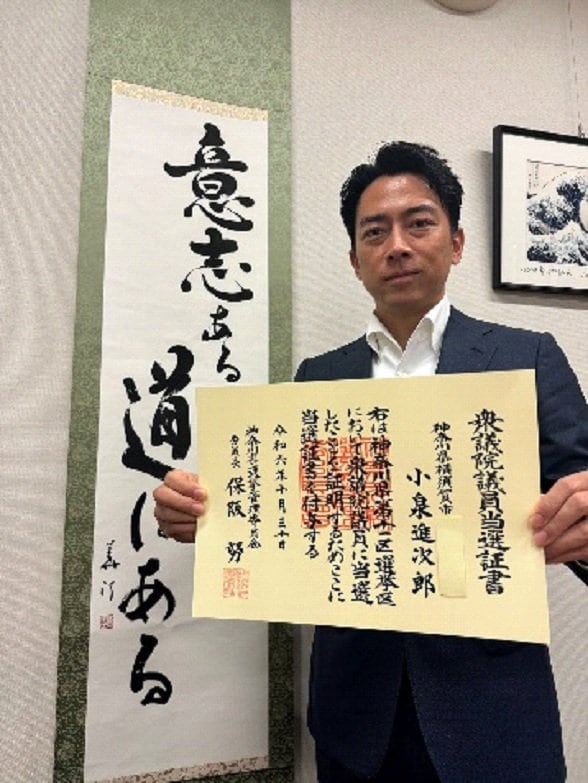 意志ある
道はある
衆議院議員当選証書
神奈川県横須賀市
小泉進次郎
右は神奈川県第十一区選挙区
において衆議院議員に当選
したことを証明するためここに
当選証書を付与する
令和六年十月三十日
神奈川県選挙管理委員会
委員長 保阪 努